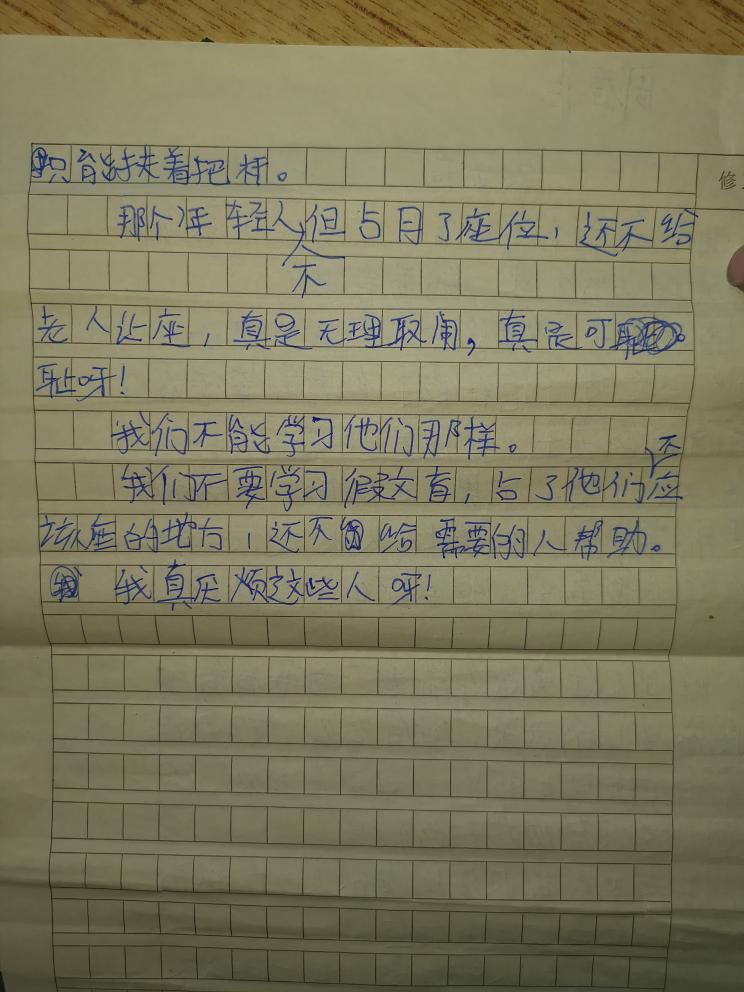 只能扶着把杆。
那个年轻人,不但占用了座位,还不给
老人让座,真是无理取闹,真是可
耻呀!
我们不能学习他们那样。
我们不要学习假文盲,占了他们不应
该座的地方,还不给需要的人帮助。
我真厌烦这些人呀!
修